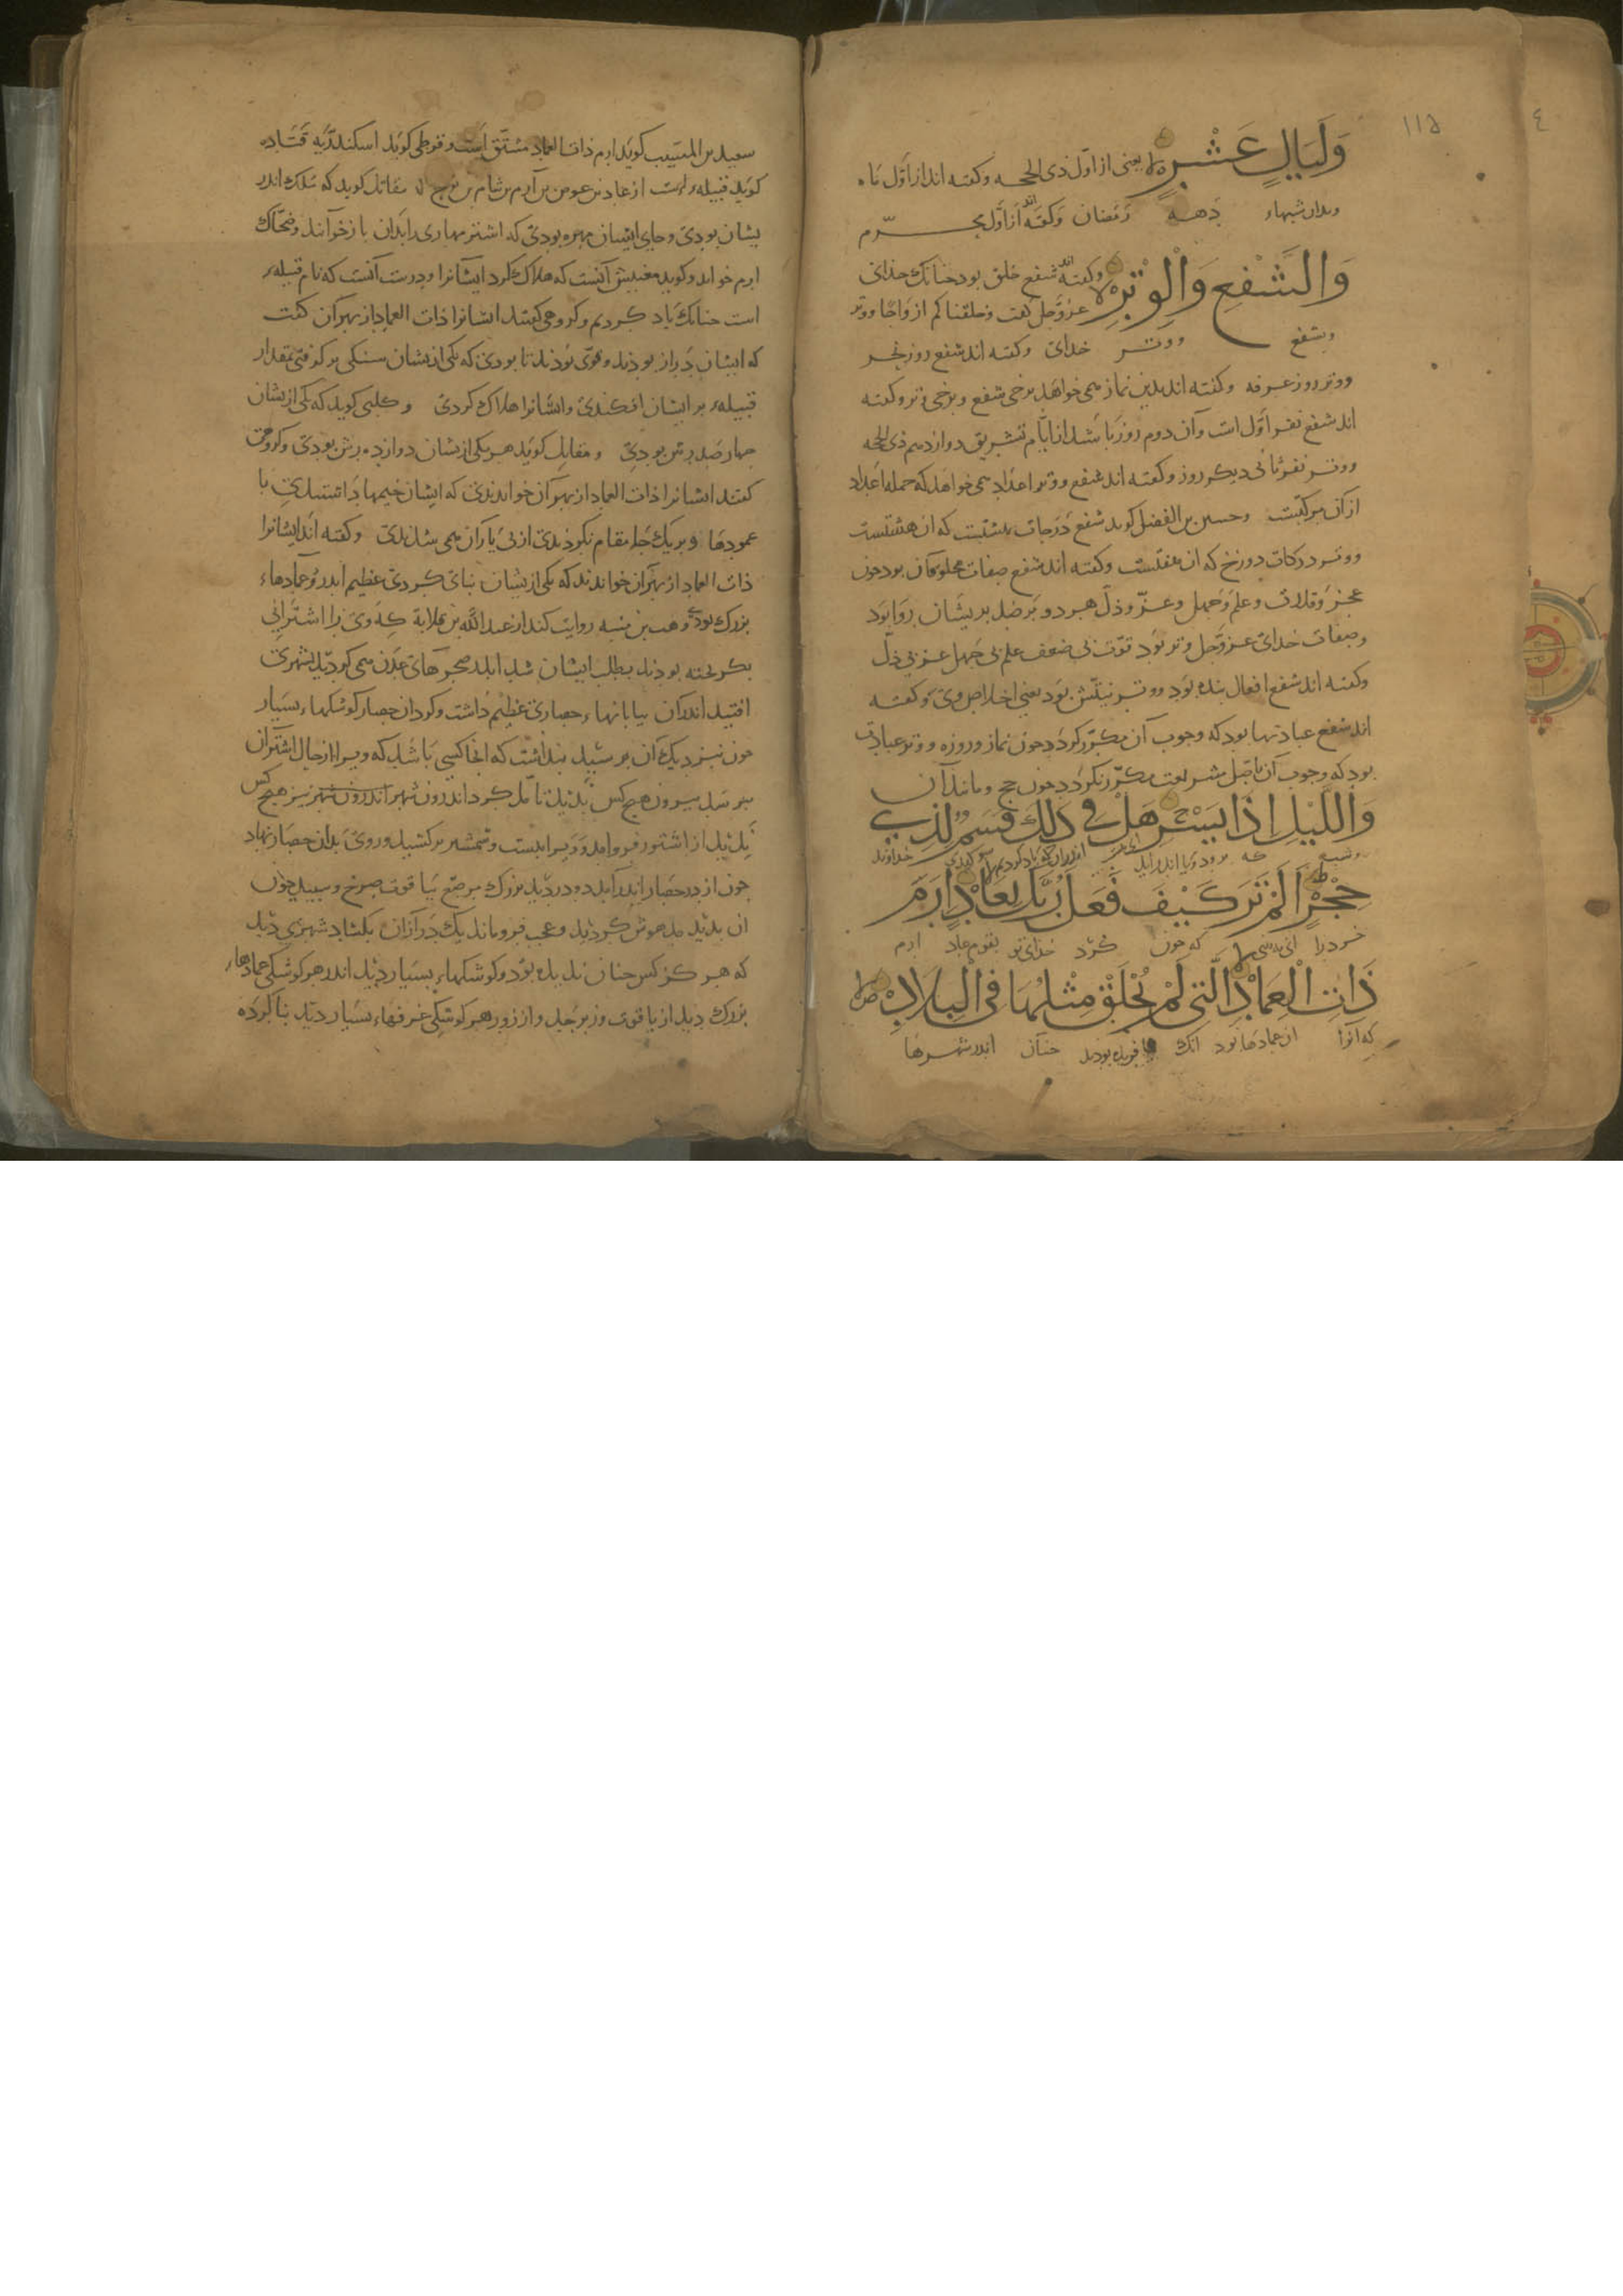 ١١٥
٤
وَلَيَالٍ عَشْرٍ لا یعنی از اوّل ذی الحجه وکفته اند از اوّل تا
وبدان شبهاء دهه رمضان وکفته اند از اوّل محرّم
وَالشَّفْعِ وَالْوَتْرِ لا وکفته اند شفع خلق بود جنانک خدای
عزّوجلّ کفت وخلقناکم ازواجا ووتر
وبشفع ووتر خدای وکفته اند شفع روز نحر
ووتر روز عرفه وکفته اند بدین نماز می خواهد برخی شفع و برخی وتر وکفته
اند شفع نفر اوّل است وآن دوم روز باشد از ایّام تشریق دوازدهم ذی الحجه
ووتر نفر ثانی دیکر روز وکفته اند شفع ووتر اعداد می خواهد که جمله اعداد
ازان مرکبست وحسین بن الفضل کوید شفع درجات بهشتست که ان هشتست
ووتر درکات دوزخ که ان هفتست وکفته اند شفع صفات مخلوقان بود جون
عجز وقدرت وعلم وجهل وعزّ وذلّ هر دو بر ضد بریشان روا بود
وصفات خدای عزّوجلّ وتر بود قوّت بی ضعف علم بی جهل عز بی ذلّ
وکفته اند شفع افعال بنده بود ووتر نیتش بود یعنی اخلاص وی وکفته
اند شفع عبادتها بود که وجوب آن مکرّر کردد جون نماز وروزه ووتر عبادت
بود که وجوب آن باصل شریعت مکرّر نکردد جون حج ومانند آن
وَاللَّيْلِ اِذَا يَسْرِ هَلْ فِي ذٰلِكَ قَسَمٌ لِذِي
وشب که برود ویا اندر آید اندران که یاد کردیم خداوند
حِجْرٍ اَلَمْ تَرَ كَيْفَ فَعَلَ رَبُّكَ بِعَادٍ اِرَمَ
خرد را که جون کرد خدای تو بقوم عاد ارم
ذَاتِ الْعِمَادِ الَّتِي لَمْ يُخْلَقْ مِثْلُهَا فِي الْبِلَادِ
که انرا ان عمادها بود انک نافریده بودند جنان اندر شهرها
سعید بن المسیب کوید ارم ذات العماد دمشق است وقرظی کوید اسکندریه قتاده
کوید قبیله است از عاد بن عوص بن ارم بن سام بن نوح مقاتل کوید که ملک اندر
یشان بودی وجای ایشان مهره بودی که اشتر مهاری را بدان بازخوانند وضحاک
ارم خواند وکوید معنیش آنست که هلاک کرد ایشانرا ودرست آنست که نام قبیله
است جنانک یاد کردیم وکروهی کفتند ایشانرا ذات العماد از بهر آن کفت
که ایشان دراز بودند وقوی بودند تا بودی که یکی ازیشان سنکی بر کرفتی بمقدار
قبیله بر ایشان افکندی وایشانرا هلاک کردی وکلبی کوید که یکی ازیشان
جهار صد رش بودی ومقاتل کوید هر یکی ازیشان دوازده رش بودی وکروهی
کفتند ایشانرا ذات العماد از بهر آن خواندندی که ایشان خیمها داشتندی با
عمودها وبر یک جا مقام نکردندی از بی یاران می شدندی وکفته اند ایشانرا
ذات العماد از بهر آن خواندند که یکی ازیشان بنای کردی عظیم اندرو عمادهاء
بزرک بودی وهب بن منبه روایت کند از عبد الله بن قلابة که وی را اشترانی
بکریخته بودند بطلب ایشان شد اندر صحراهای عدن می کردید بشهری
افتید اندران بیابانها حصاری عظیم داشت وکرد ان حصار کوشکهاء بسیار
جون نزدیک آن برسید بنداشت که انجا کسی باشد که ویرا از حال اشتران
ببرسد بیرون هیج کس ندید تامّل کرد اندرون شهر اندرون شهر نیز هیج کس
ندید از اشتر فرو امد ووَیرا ببست وشمشیر برکشید وروی بدان حصار نهاد
جون از در حصار اندر آمد دو در دید بزرک مرصّع بیاقوت سرخ وسبید جون
ان بدید مدهوش کردید وعجب فرو ماند یک در ازان بکشاد شهری دید
که هرکز کس جنان ندیده بود وکوشکهاء بسیار دید اندر هر کوشکی عمادهاء
بزرک دید از یاقوت وزبرجد واز زور هر کوشکی غرفهاء بسیار دید بنا کرده